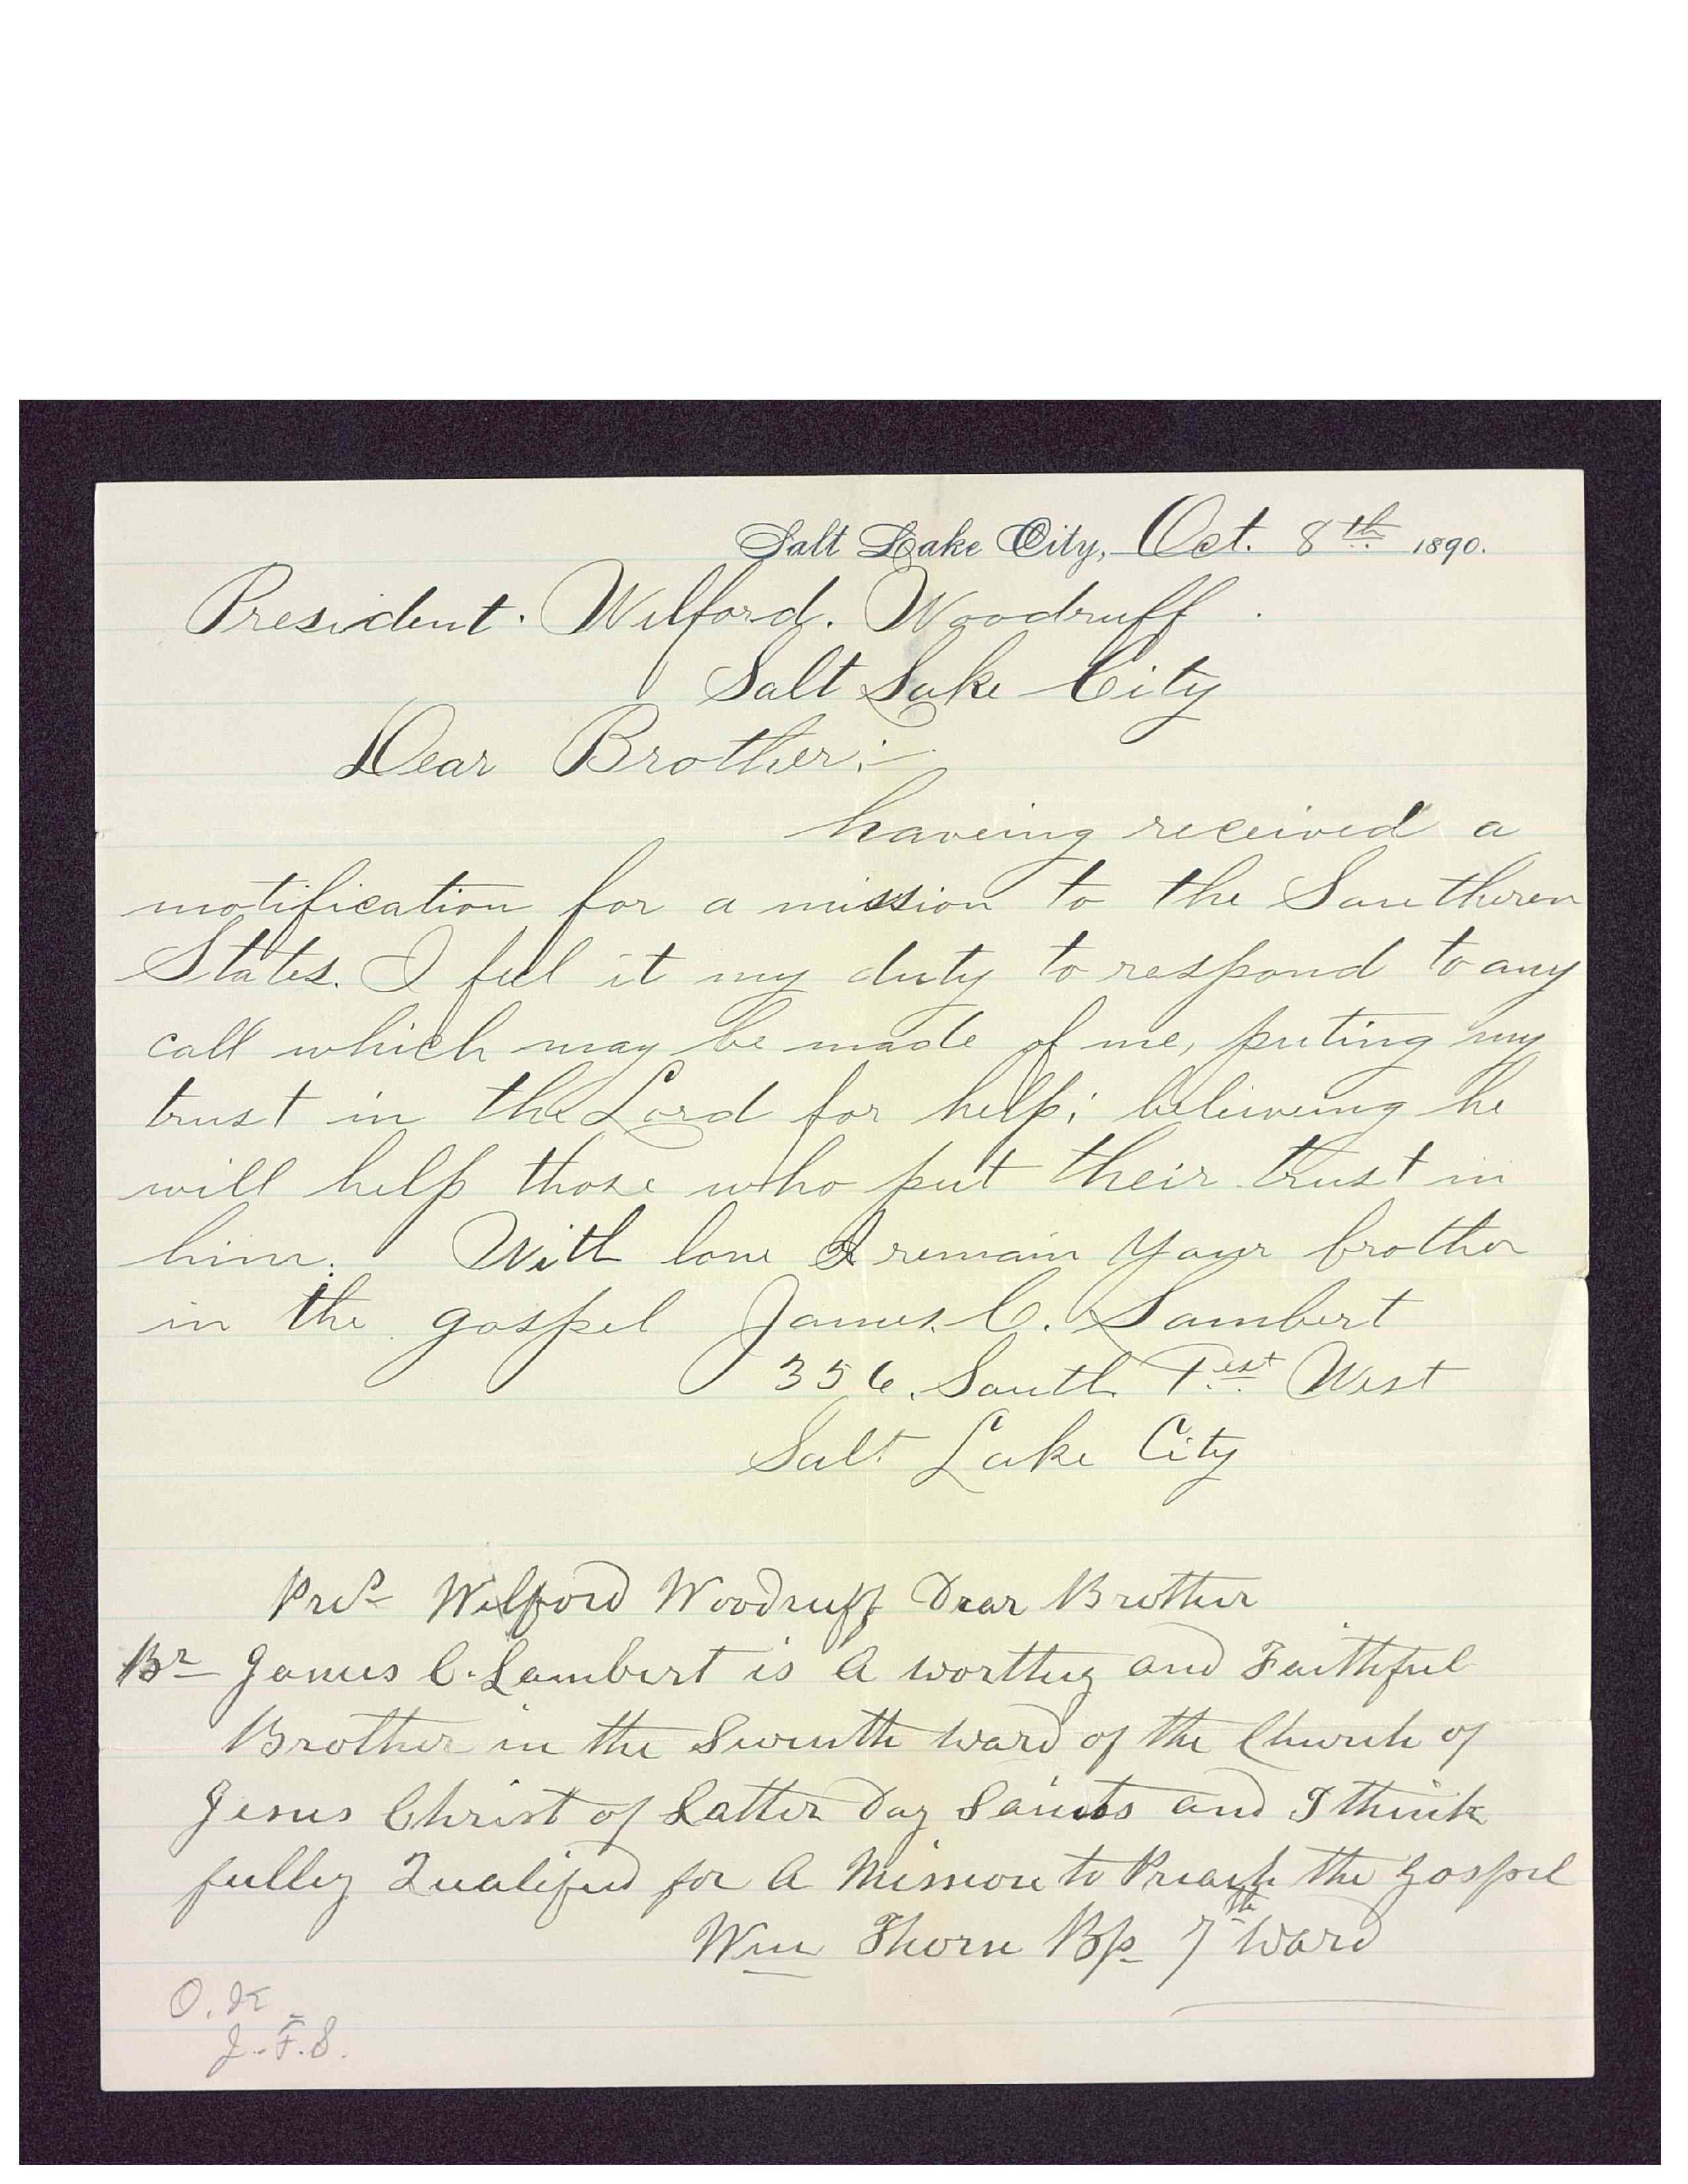 Salt Lake City, Oct. 8th 1890.
President. Wilford. Woodruff.
Salt Lake City
Dear Brother:-
haveing received a
notification for a mission to the Southeren
States. I feel it my duty to respond to any
call which may be made of me, puting my
trust in the Lord for help; believeing he
will help those who put their trust in
him. With love I remain your brother
in the gospel James. C. Lambert
356. South 1est West
Salt Lake City
Prest Wilford Woodruff Dear Brother
Br James C. Lambert is A worthy and Faithful
Brother in the Seventh ward of the Church of
Jesus Christ of Latter Day Saints and I think
fulley Qualified for A Mission to Preach the Gospel
Wm Thorn Bp 7th Ward
O.K
J.F.S.